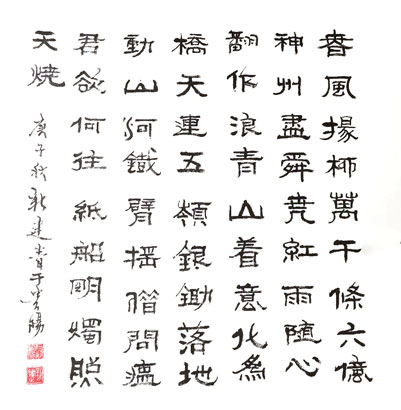 春風揚柳萬千條六億
神州盡舜堯紅雨隨心
翻作浪青山着意化為
橋天連五嶺銀鋤落地
動山河鐵臂揺借問瘟
君欲何往紙船明燭照
天燒
庚子秋新建書于貴陽